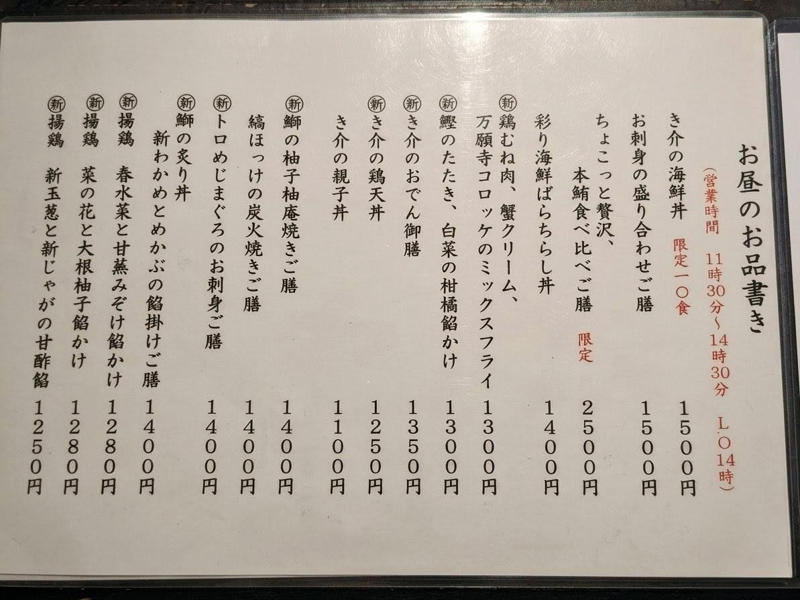 お昼のお品書き
（営業時間　11時30分～14時30分　L.O14時）
き介の海鮮丼　限定一〇食　1500円
お刺身の盛り合わせご膳　1500円
ちょこっと贅沢、
本鮪食べ比べご膳　限定　2500円
彩り海鮮ばらちらし丼　1400円
㊟鶏むね肉、蟹クリーム、
万願寺コロッケのミックスフライ　1300円
新鰹のたたき、白菜の柑橘餡かけ　1300円
新き介のおでん御膳　1350円
新き介の鶏天丼　1250円
き介の親子丼　1100円
新鰤の柚子柚庵焼きご膳　1400円
縞ほっけの炭火焼きご膳　1400円
新トロめじまぐろのお刺身ご膳　1400円
新鰤の炙り丼
新わかめとめかぶの餡掛けご膳　1400円
新揚鶏　春水菜と甘蕪みぞれ餡かけ　1280円
新揚鶏　菜の花と大根柚子餡かけ　1280円
新揚鶏　新玉葱と新じゃがの甘酢餡　1250円